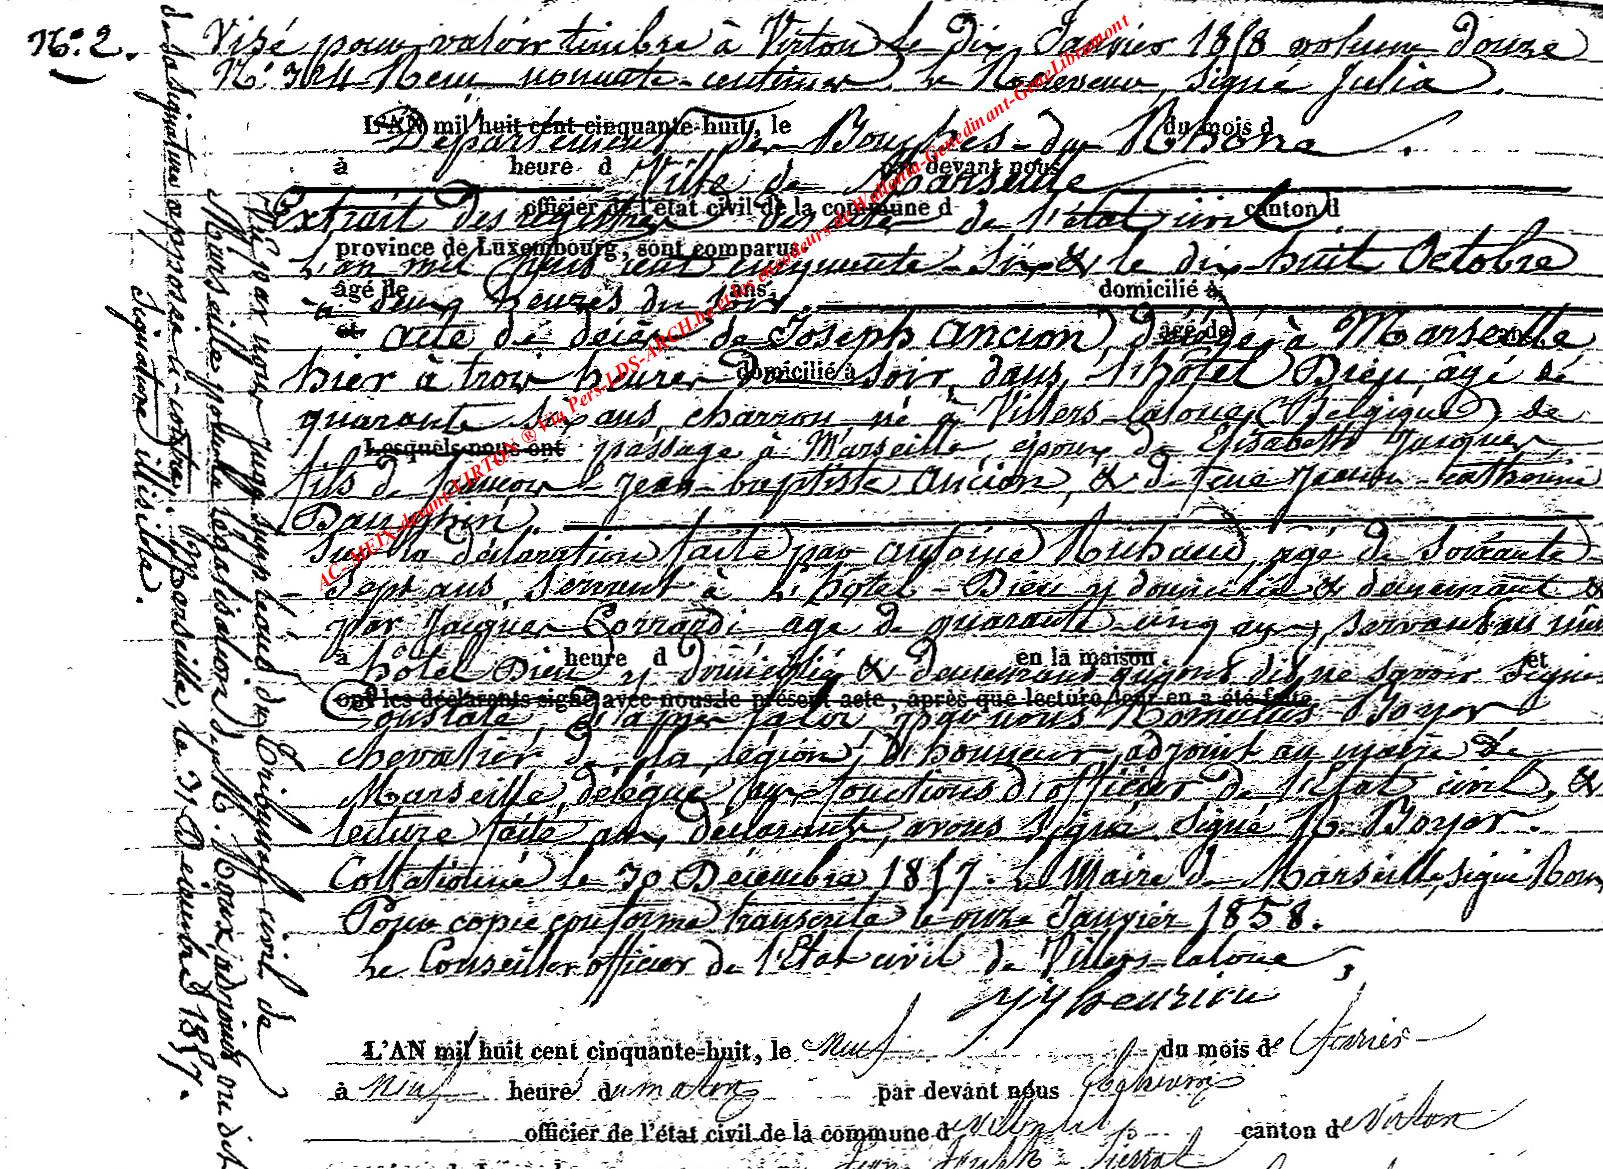 No. 2.
Visé pour valoir timbre à Virton le dix Janvier 1858 volume douze
N.º 324 Reçu nonante-centimes. Le Receveur, signé Julia.
L'AN mil huit cent cinquante-huit, le du mois d
Département des Bouches-du-Rhone.
à heure d par devant nous
Ville de Marseille
officier de l'état civil de la commune d canton d
Extrait des registres des actes de l'état civil.
province de Luxembourg, sont comparus.
L'an mil huit cent cinquante-six & le dix-huit Octobre
âgé de ans, domicilié à
à cinq heures du soir.
et âgé de ans
acte de décès de Joseph Ancion, décédé à Marseille
domicilié à
hier à trois heures du soir, dans l'hôtel Dieu, âgé de
quarante six ans, charron né à Villers-laloue (Belgique) de
Lesquels nous ont
passage à Marseille, époux de Elisabeth Jacques
fils de François-Jean-baptiste Ancion, & de feue Jeanne-Cathérine
Dauphin.
Sur la déclaration faite par Antoine Michaud, âgé de soixante-
sept ans, servant à L'hôtel-Dieu y domicilié & demeurant &
par Jacques Corrardi âgé de quarante cinq ans, servant au même
à heure d en la maison et
hôtel Dieu y domicilié & demeurant qui ont dit ne savoir signer
ont les déclarants signé avec nous le présent acte, après que lecture leur en a été faite
Constaté d'après la loi, par nous Romulus Boyer
chevalier de la légion d'honneur, adjoint au maire de
Marseille, délégué aux fonctions d'officier de l'état civil, &
lecture faite aux déclarants, avons signé. Signé R. Boyer.
Collationné le 30 Décembre 1857. Le Maire de Marseille, signé
Pour copie conforme transcrite le onze Janvier 1858.
Le Conseiller officier de l'Etat civil de Villers-laloue,
L'AN mil huit cent cinquante-huit, le neuf du mois de février
à neuf heure du matin par devant nous
officier de l'état civil de la commune d canton de Virton
Vu par nous juge suppléant du Tribunal civil de
Marseille pour la légalisation de M. Roux adjoint ou dit
de la signature apposée ci-contre. Marseille, le 31 Décembre 1857.
Signature illisible.
AC-MEIX-devant-VIRTON ® Via Pers-LDS-ARCH.be et les encodeurs de Wallonia-Genedinant-GeneLibramont